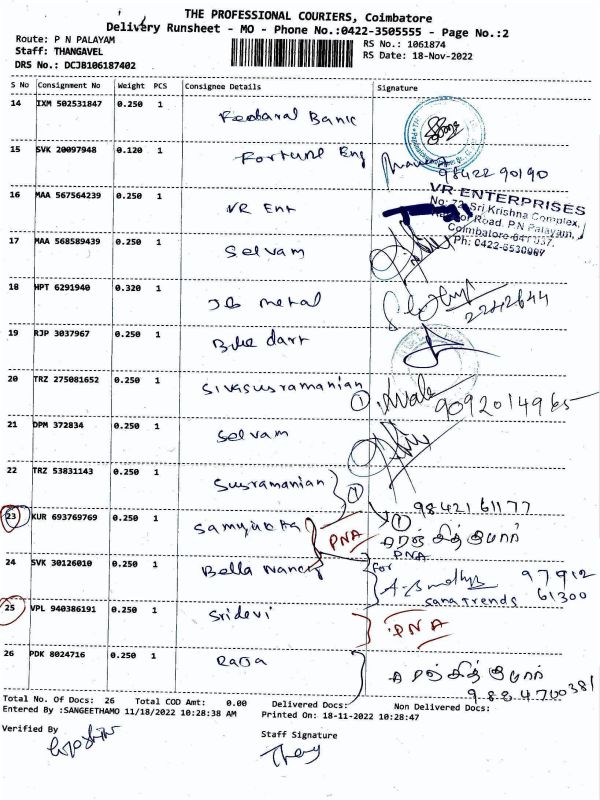 THE PROFESSIONAL COURIERS, Coimbatore
Delivery Runsheet - MO - Phone No.:0422-3505555 - Page No.:2
Route: P N PALAYAM
RS No.: 1061874
Staff: THANGAVEL
RS Date: 18-Nov-2022
DRS No.: DCJB106187402
S No Consignment No Weight PCS Consignee Details Signature
14 IXM 502531847 0.250 1 Fedaral Bank
15 SVK 20097948 0.120 1 Fortune Eng
98422 90190
16 MAA 567564239 0.250 1 VR Ent
VR ENTERPRISES
Sri Krishna Complex,
Road, P.N Palayam,
Coimbatore-641 037.
Ph: 0422-6530087
17 MAA 568589439 0.250 1 Selvam
18 HPT 6291940 0.320 1 JB metal
2242644
19 RJP 3037967 0.250 1 Blue dart
20 TRZ 275081652 0.250 1 Sivasusramanian
① 9092014965
21 DPM 372834 0.250 1 Selvam
22 TRZ 53831143 0.250 1 Susramanian ①
98421 61177
23 KUR 693769769 0.250 1 Samyukta PNA ①
PNA
24 SVK 30126010 0.250 1 Bella Nancy
For
97912
61300
Sana Trends
25 VPL 940386191 0.250 1 Sridevi PNA
26 PDK 8024716 0.250 1 Raja
9884700381
Total No. Of Docs: 26 Total COD Amt: 0.00 Delivered Docs: Non Delivered Docs:
Entered By :SANGEETHAMO 11/18/2022 10:28:38 AM Printed On: 18-11-2022 10:28:47
Verified By
Staff Signature